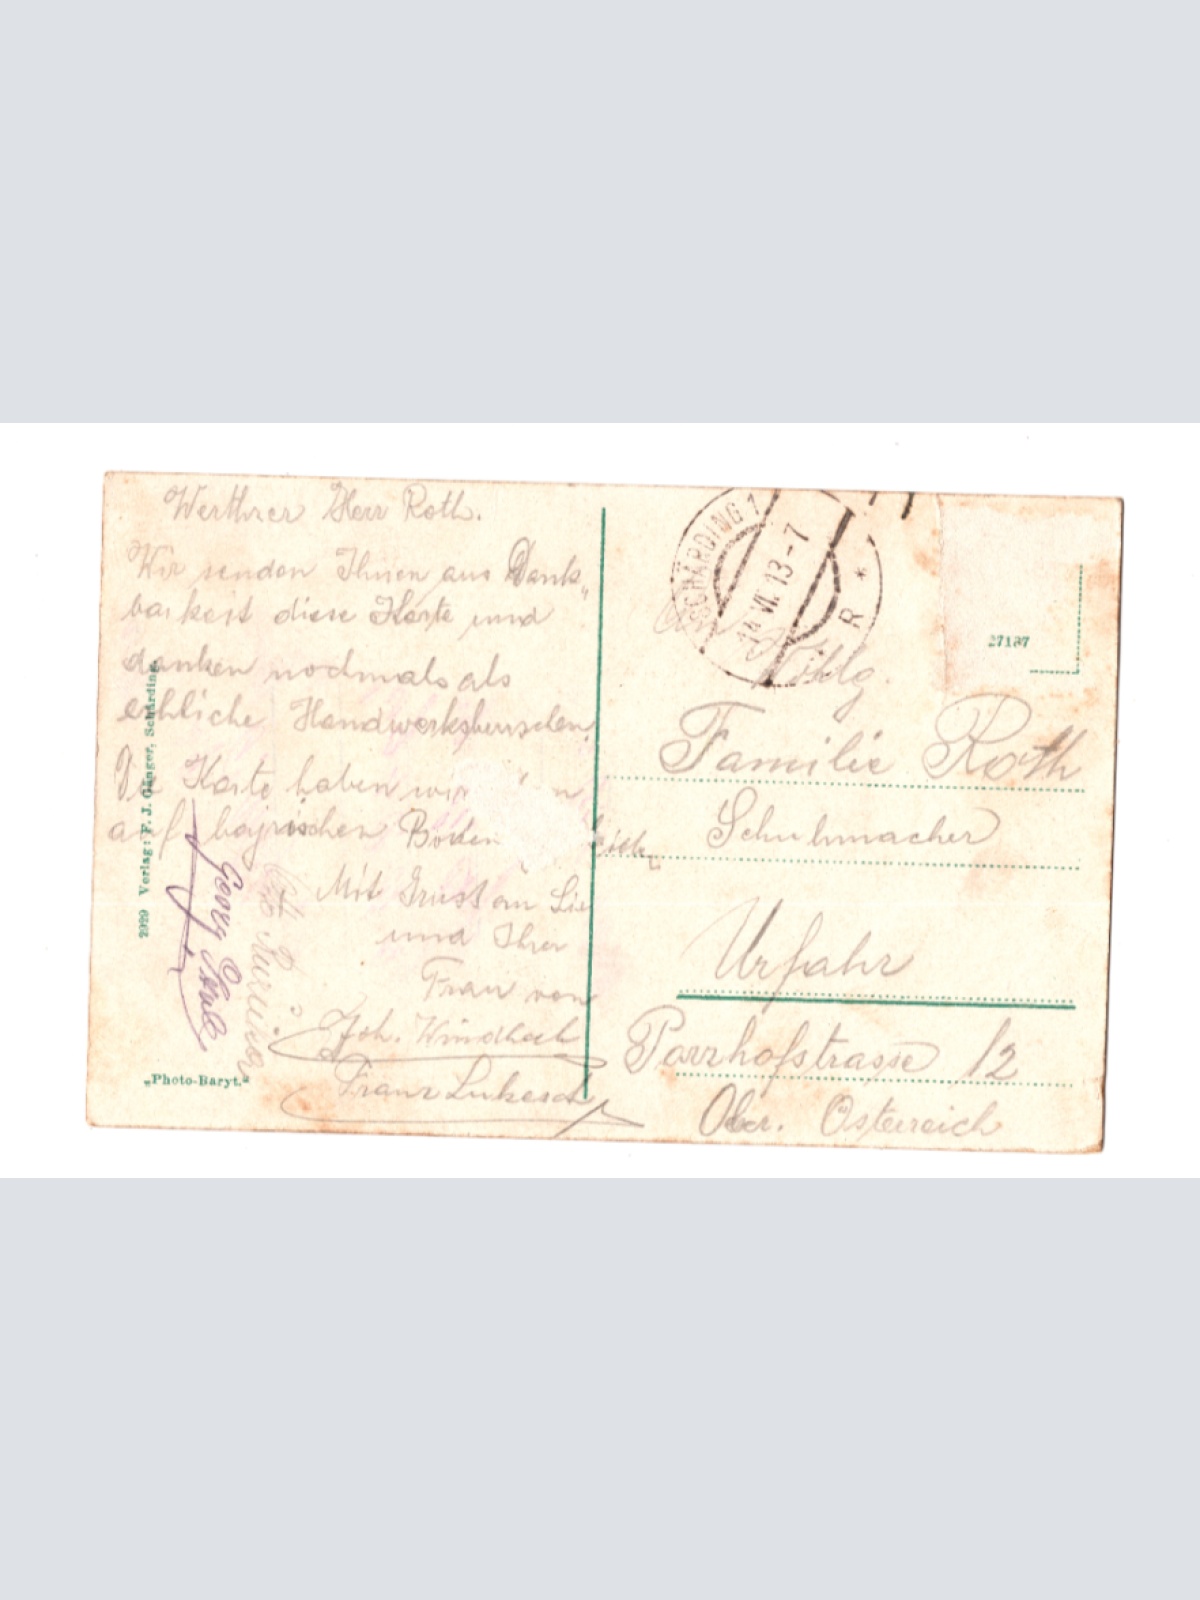 Werthrer Herr Roth.
Wir senden Ihnen aus Dank„
barkeit diese Karte und
danken nochmals als
erhliche Handwerksburschen.
Die Karte haben wir
auf bayrischen Boden
Mit Gruss an Sie
und Ihrer
Frau von
Joh. Windhach
Franz Lukesch
Georg
2929 Verlag: F. J. Gänger, Schärding.
„Photo-Baryt."
SCHÄRDING 1
14 VI. 13-7
R *
27187
An
Wohlg.
Familie Roth
Schuhmacher
Urfahr
Parrhofstrasse 12
Ober. Österreich